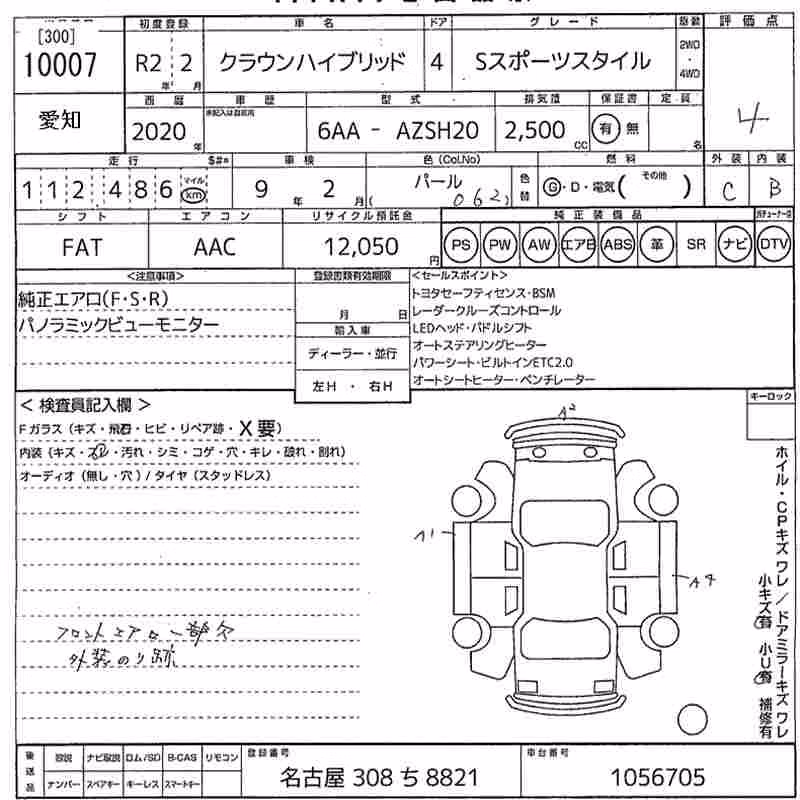 [300]
10007
初度登録
車名
ドア
グレード
駆動
評価点
R2 2
年 月
クラウンハイブリッド
4
Sスポーツスタイル
2WD
・
4WD
愛知
西暦
車歴
型式
排気量
保証書
定員
4
未記入は自家用
2020年
6AA - AZSH20
2,500 CC
有 無
名
走行
車検
色(Col.No)
燃料
外装
内装
112,486
マイル
km
9年 2月
パール
(062)
色替
G・D・電気( その他 )
C
B
シフト
エアコン
リサイクル預託金
純正装備品
FAT
AAC
12,050円
PS PW AW エアB ABS 革 SR ナビ DTV
<注意事項>
登録書類有効期限
<セールスポイント>
純正エアロ(F・S・R)
パノラミックビューモニター
月 日
輸入車
ディーラー・並行
左H ・ 右H
トヨタセーフティセンス・BSM
レーダークルーズコントロール
LEDヘッド・パドルシフト
オートステアリングヒーター
パワーシート・ビルトインETC2.0
オートシートヒーター・ベンチレーター
キーロック
< 検査員記入欄 >
Fガラス (キズ・飛石・ヒビ・リペア跡・X要)
内装 (キズ・スレ・汚れ・シミ・コゲ・穴・キレ・破れ・割れ)
オーディオ (無し・穴) / タイヤ (スタッドレス)
A2
A1
A4
フロントエアロ一部欠
外装のり跡
ホイル・CPキズ ワレ / ドアミラーキズ ワレ
小キズ有 小U有 補修有
後送品
取説 ナビ取説 ロム/SD B-CAS リモコン
ナンバー スペアキー キーレス スマートキー
登録番号
名古屋 308 ち 8821
車台番号
1056705